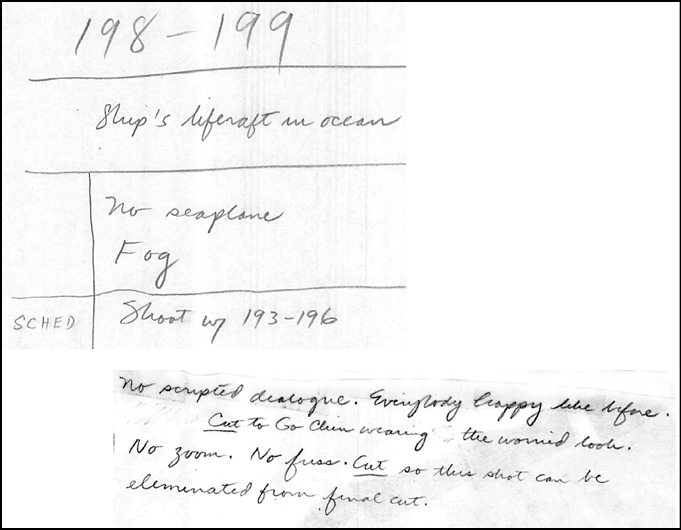 198-199
Ship's liferaft in ocean
No seaplane
Fog
SCHED Shoot w/ 193-196
No scripted dialogue. Everybody happy like before.
Cut to Go Chin wearing the worried look.
No zoom. No fuss. Cut so this shot can be
eleminated from final cut.